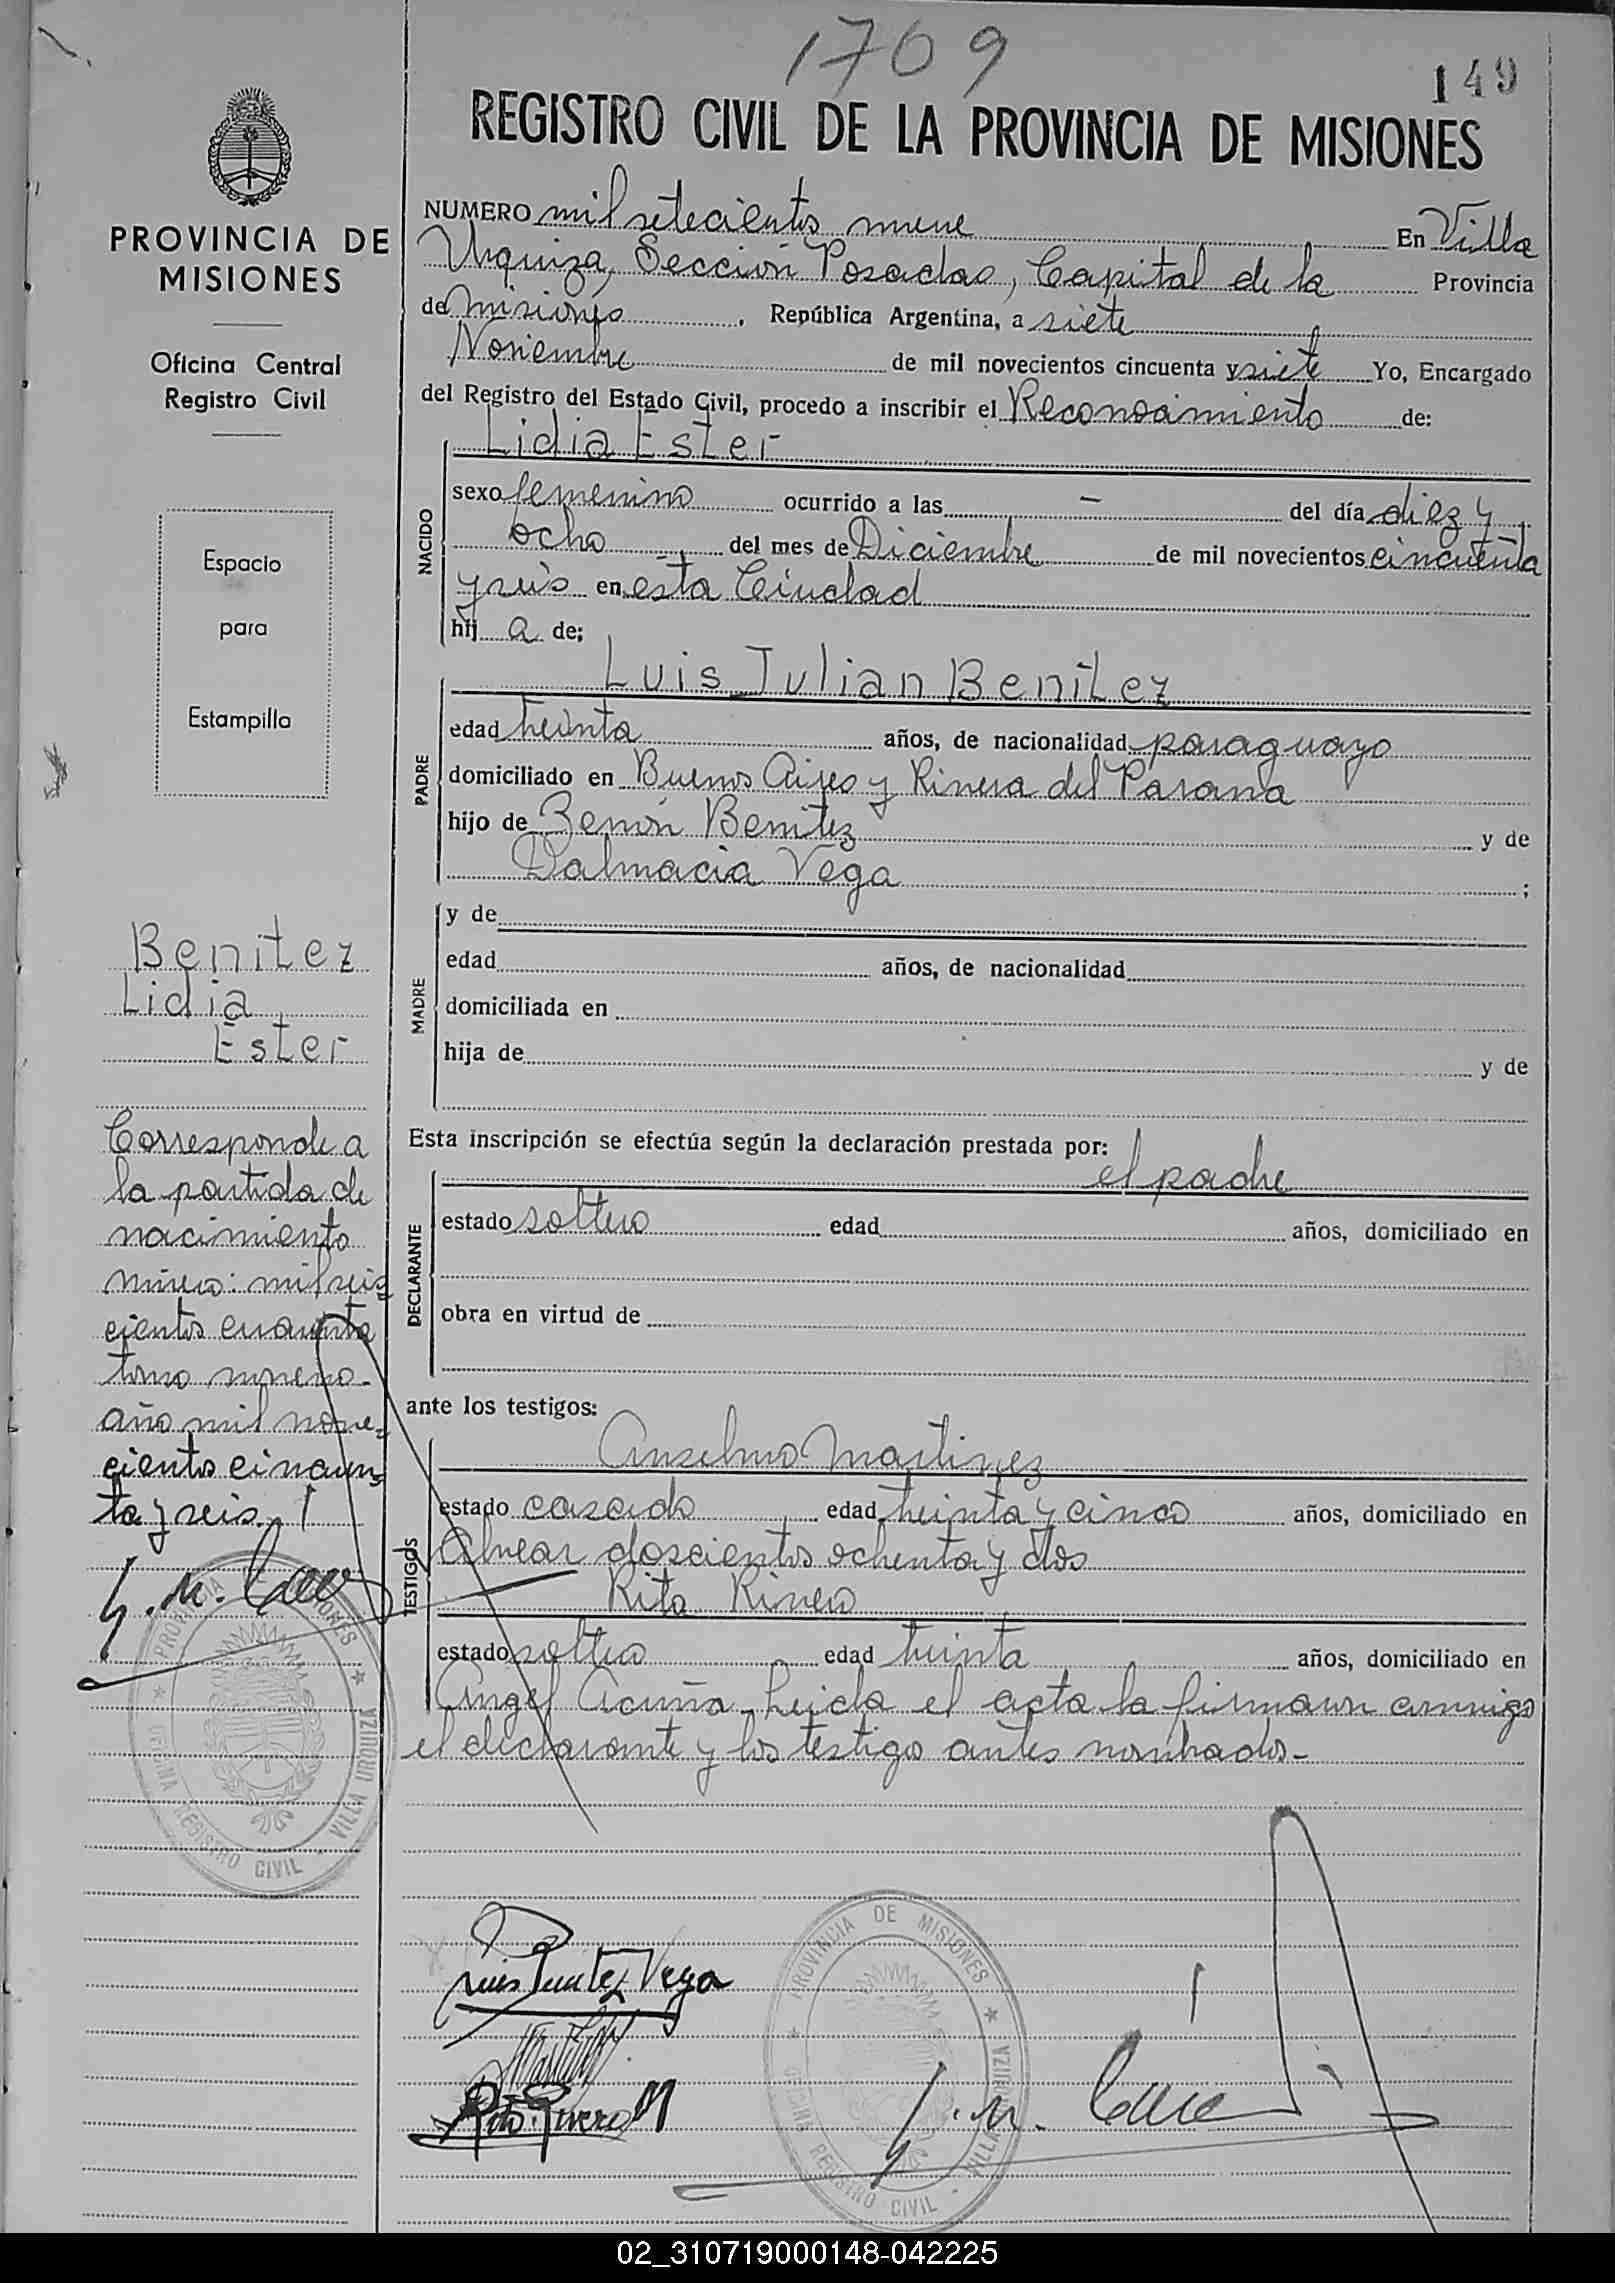 1709
149
REGISTRO CIVIL DE LA PROVINCIA DE MISIONES
PROVINCIA DE
MISIONES
Oficina Central
Registro Civil
Espacio
para
Estampilla
NUMERO mil setecientos nueve En Villa
Urquiza, Sección Posadas, Capital de la Provincia
de Misiones, República Argentina, a siete
Noviembre de mil novecientos cincuenta y siete Yo, Encargado
del Registro del Estado Civil, procedo a inscribir el Reconocimiento de:
Lidia Ester
NACIDO
sexo femenino ocurrido a las — del día diez y
ocho del mes de Diciembre de mil novecientos cincuenta
y seis en esta Ciudad
hij a de;
Luis Julian Benitez
PADRE
edad treinta años, de nacionalidad paraguayo
domiciliado en Buenos Aires y Rivera del Paraná
hijo de Zenón Benitez y de
Dalmacia Vega ;
MADRE
y de
edad años, de nacionalidad
domiciliada en
hija de y de
Esta inscripción se efectúa según la declaración prestada por:
el padre
DECLARANTE
estado soltero edad años, domiciliado en
obra en virtud de
ante los testigos:
Anselmo Martinez
TESTIGOS
estado casado edad treinta y cinco años, domiciliado en
Alvear doscientos ochenta y dos
Rito Rivero
estado soltero edad treinta años, domiciliado en
Angel Acuña. Leida el acta la firmaron conmigo
el declarante y los testigo antes nombrados.-
Benitez
Lidia
Ester
Corresponde a
la partida de
nacimiento
número: mil seis
cientos cuarenta
tomo noveno-
año mil nove-
cientos cincuen-
ta y seis.
PROVINCIA DE MISIONES
OFICINA REGISTRO CIVIL · VILLA URQUIZA
Luis Benitez Vega
Rito Rivero M
PROVINCIA DE MISIONES
OFICINA REGISTRO CIVIL · VILLA URQUIZA
02_310719000148-042225